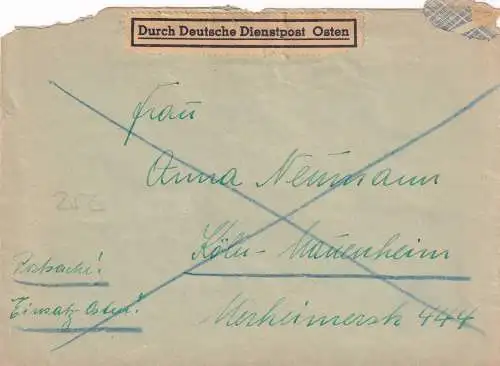 Durch Deutsche Dienstpost Osten
Frau
Anna Neumann
Köln-Mauenheim
Postsache!
Einsatz-Osten!
Merheimerstr 444